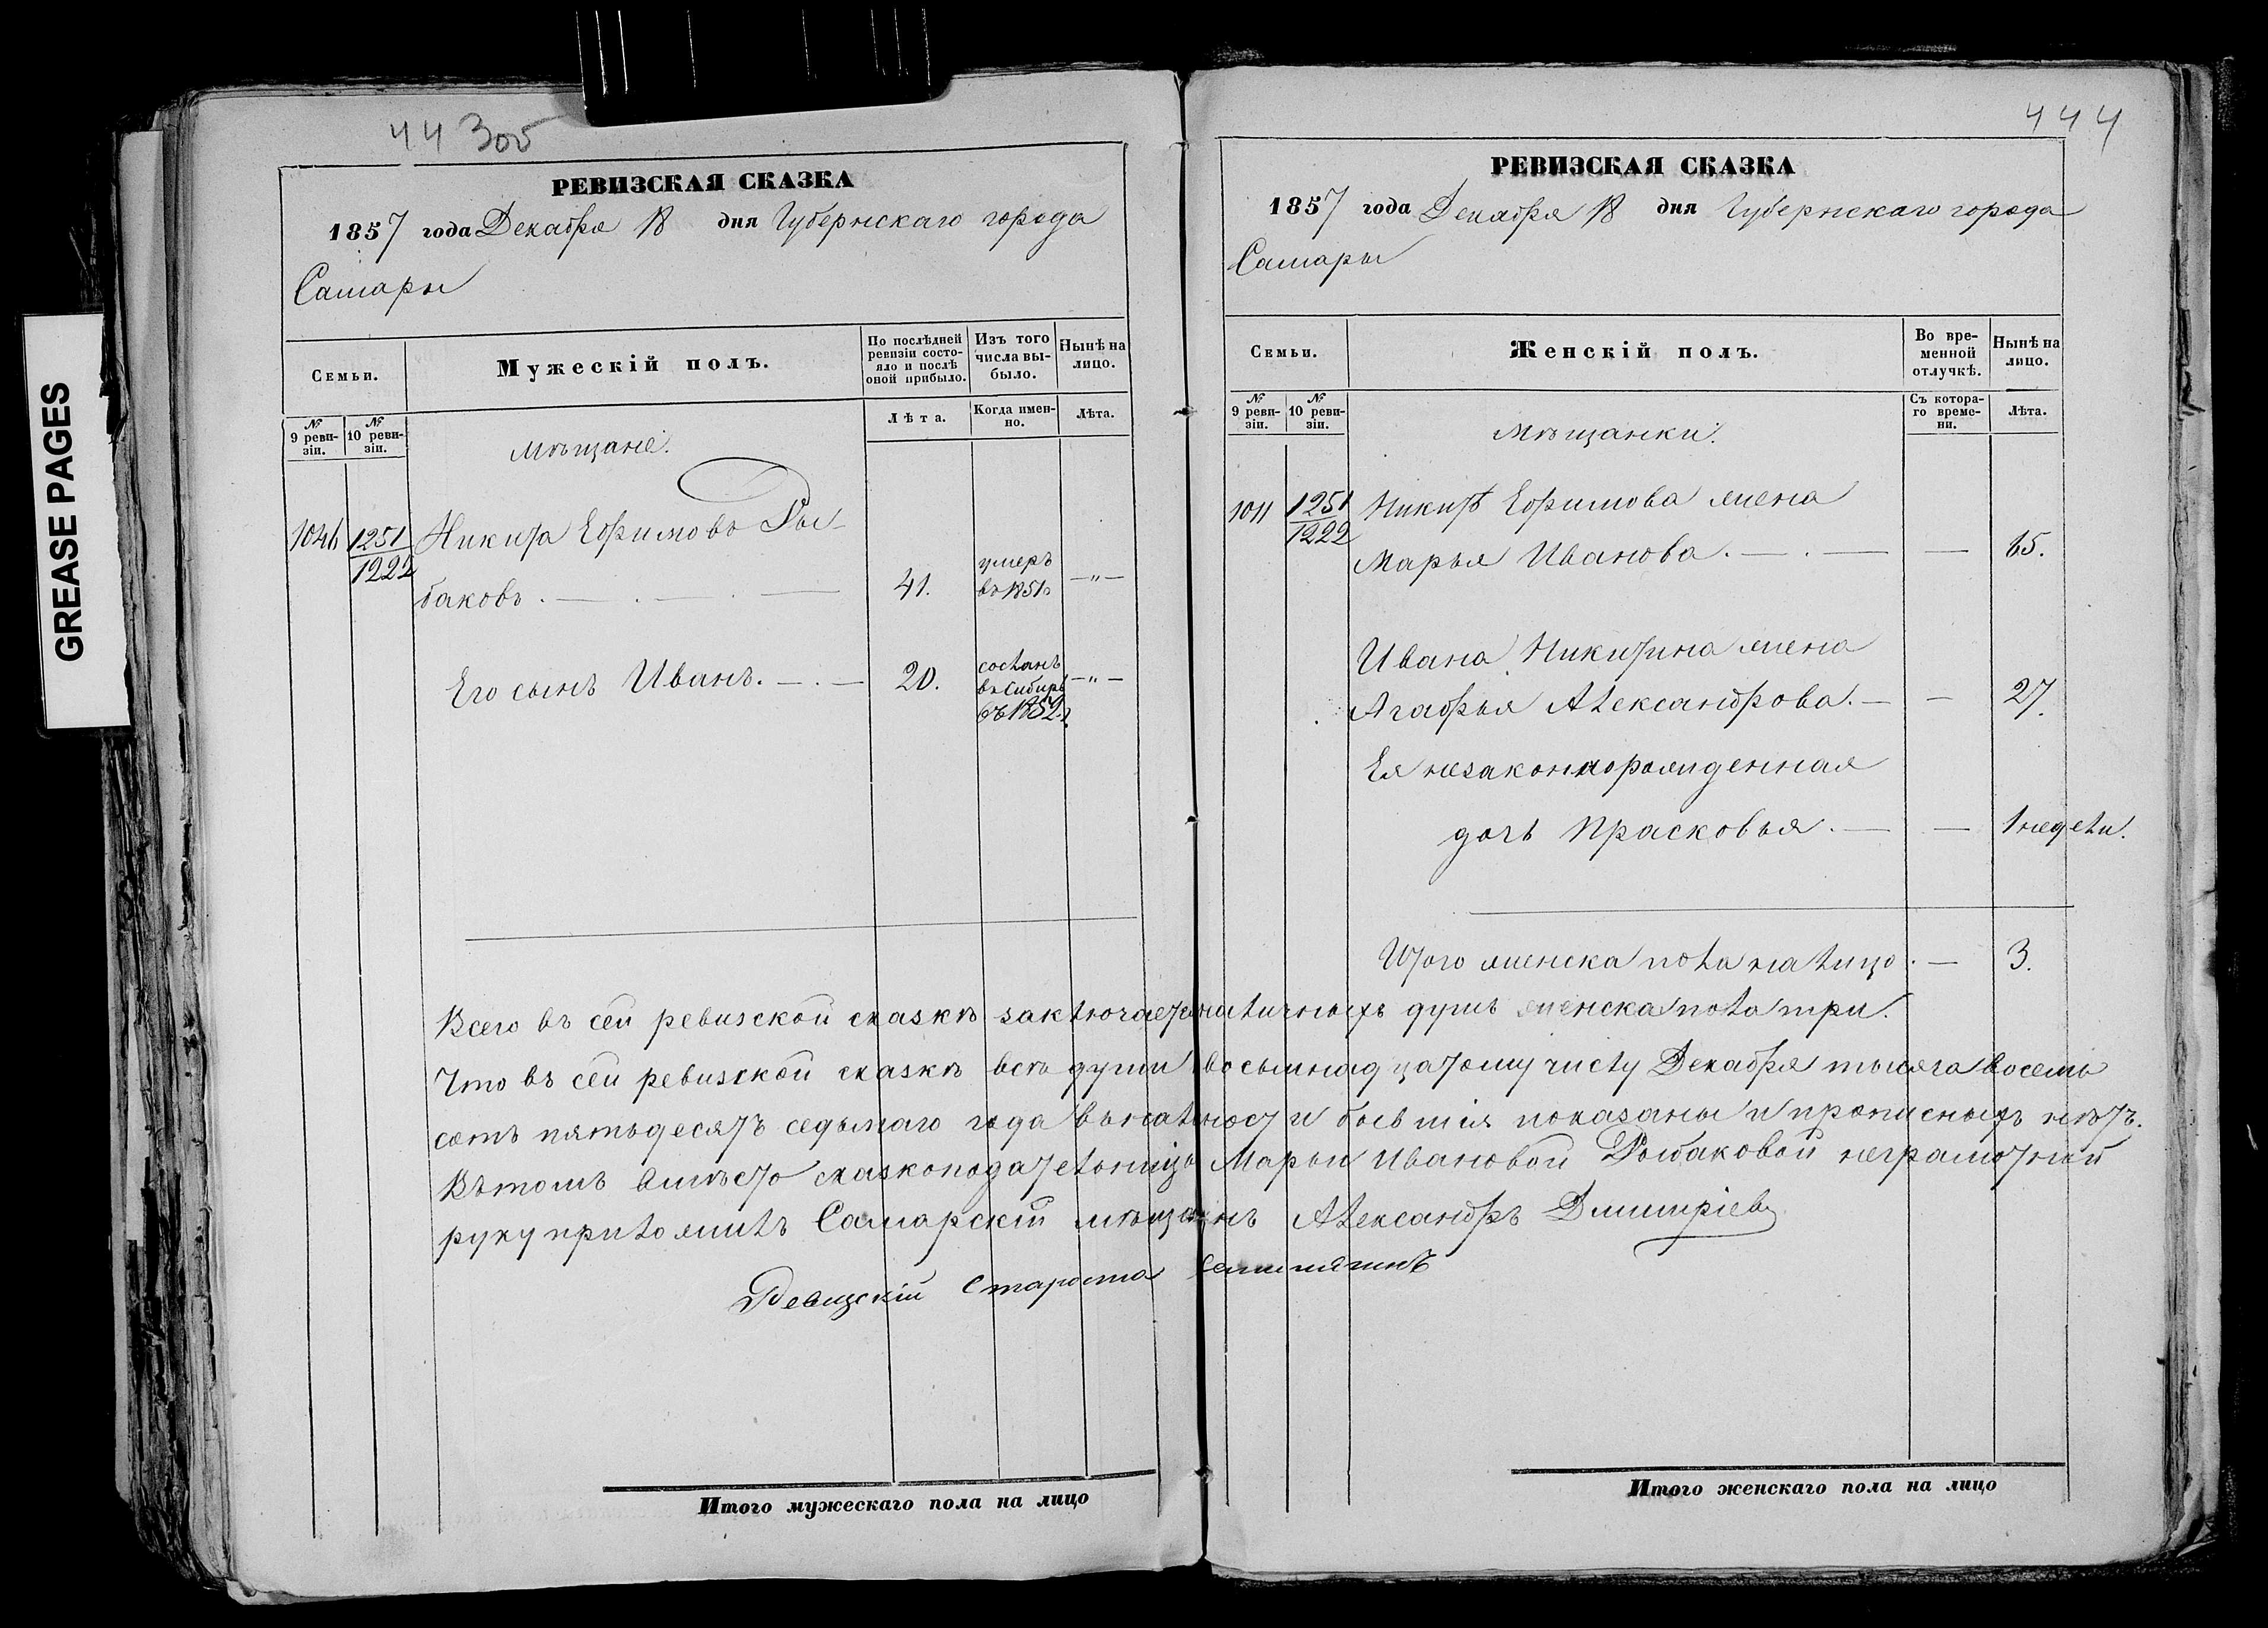 GREASE PAGES
44 305
РЕВИЗСКАЯ СКАЗКА
1857 года Декабря 18 дня Губернскаго города
Самары
Семьи.
Мужескій полъ.
По послѣдней ревизіи состояло и послѣ оной прибыло.
Изъ того числа выбыло.
Нынѣ на лицо.
№ 9 ревизіи.
№ 10 ревизіи.
Лѣта.
Когда именно.
Лѣта.
Мѣщане.
1251 Никита Ефимовъ Ры-
1222
баковъ . — . — . — 41. умеръ въ 1851. —„—
Его сынъ Иванъ. — . — 20. сосланъ въ Сибирь въ 1852. —„—
Итого мужескаго пола на лицо
444
РЕВИЗСКАЯ СКАЗКА
1857 года Декабря 18 дня Губернскаго города
Самары
Семьи.
Женскій полъ.
Во временной отлучкѣ.
Нынѣ на лицо.
№ 9 ревизіи.
№ 10 ревизіи.
Съ котораго времени.
Лѣта.
Мѣщанки.
1011 1251 Никиты Ефимова жена
1222
Марья Иванова. — . — — 65.
Ивана Никитина жена
Агафья Александрова. — — 27.
Ея незаконнорожденная
дочь Прасковья. — — 1 недели.
Итого женска пола на лицо. — 3.
Всего въ сей ревизской сказкѣ заключается наличныхъ душъ женска пола три.
Что въ сей ревизской сказкѣ всѣ души восьмнадцатому числу Декабря тысяча восемь
сотъ пятьдесятъ седьмаго года въ наличности бывшія показаны и прописныхъ нѣтъ.
Въ томъ вмѣсто сказкоподательницы Марьи Ивановой Рыбаковой неграмотной
руку приложилъ Самарскій мѣщанинъ Александръ Дмитріевъ
Ревизскій Староста
Итого женскаго пола на лицо